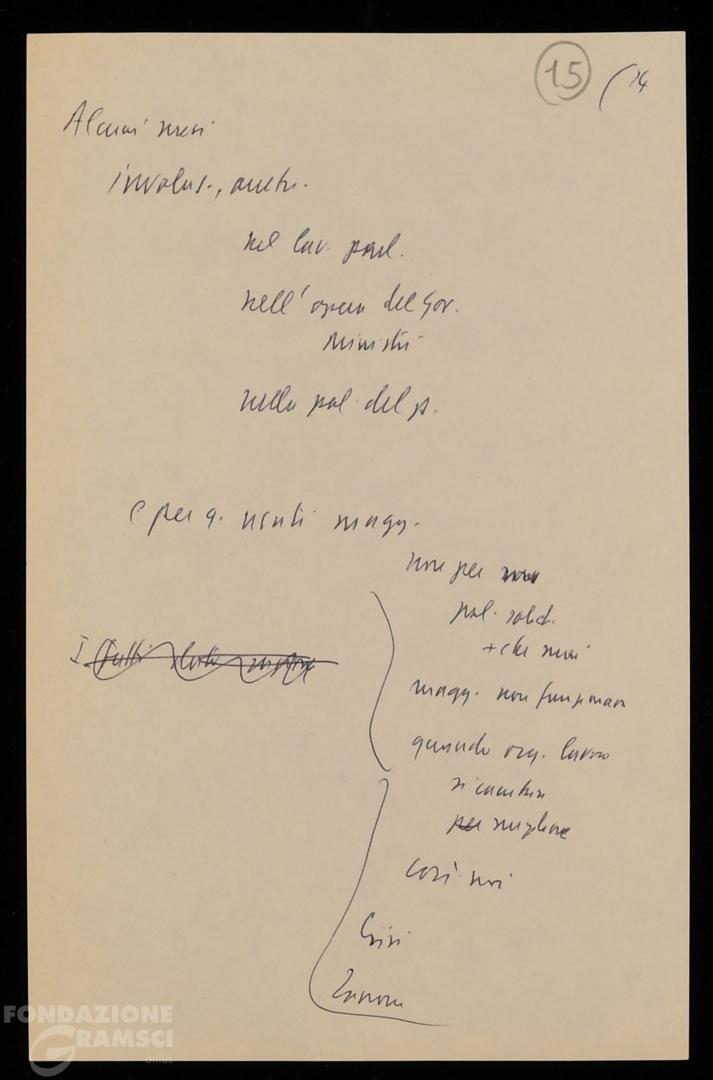 15 (14
Alcuni mesi
involuz., 
nel lav. parl.
nell'opera del Gov.
Ministri
nella pol. del p.
e per q. usciti magg.
non per
pol. solid.
+ che mai
magg. non funzionava
quando org. lavoro
si cambia
per migliorare
così noi
Crisi
FONDAZIONE
GRAMSCI
onlus